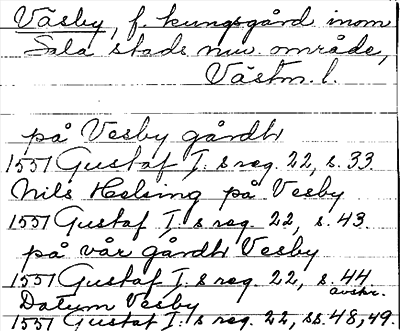 Väsby, f. kungsgård inom
Sala stads nuv. område,
Västm. l.
på Vesby gårdh
1551 Gustaf I:s reg. 22, s. 33.
Nils Helsing på Vesby
1551 Gustaf I:s reg. 22, s. 43.
på vår gårdh Vesby
1551 Gustaf I:s reg. 22, s. 44
avskr.
Datum Vesby
1551 Gustaf I:s reg. 22, ss. 48, 49.